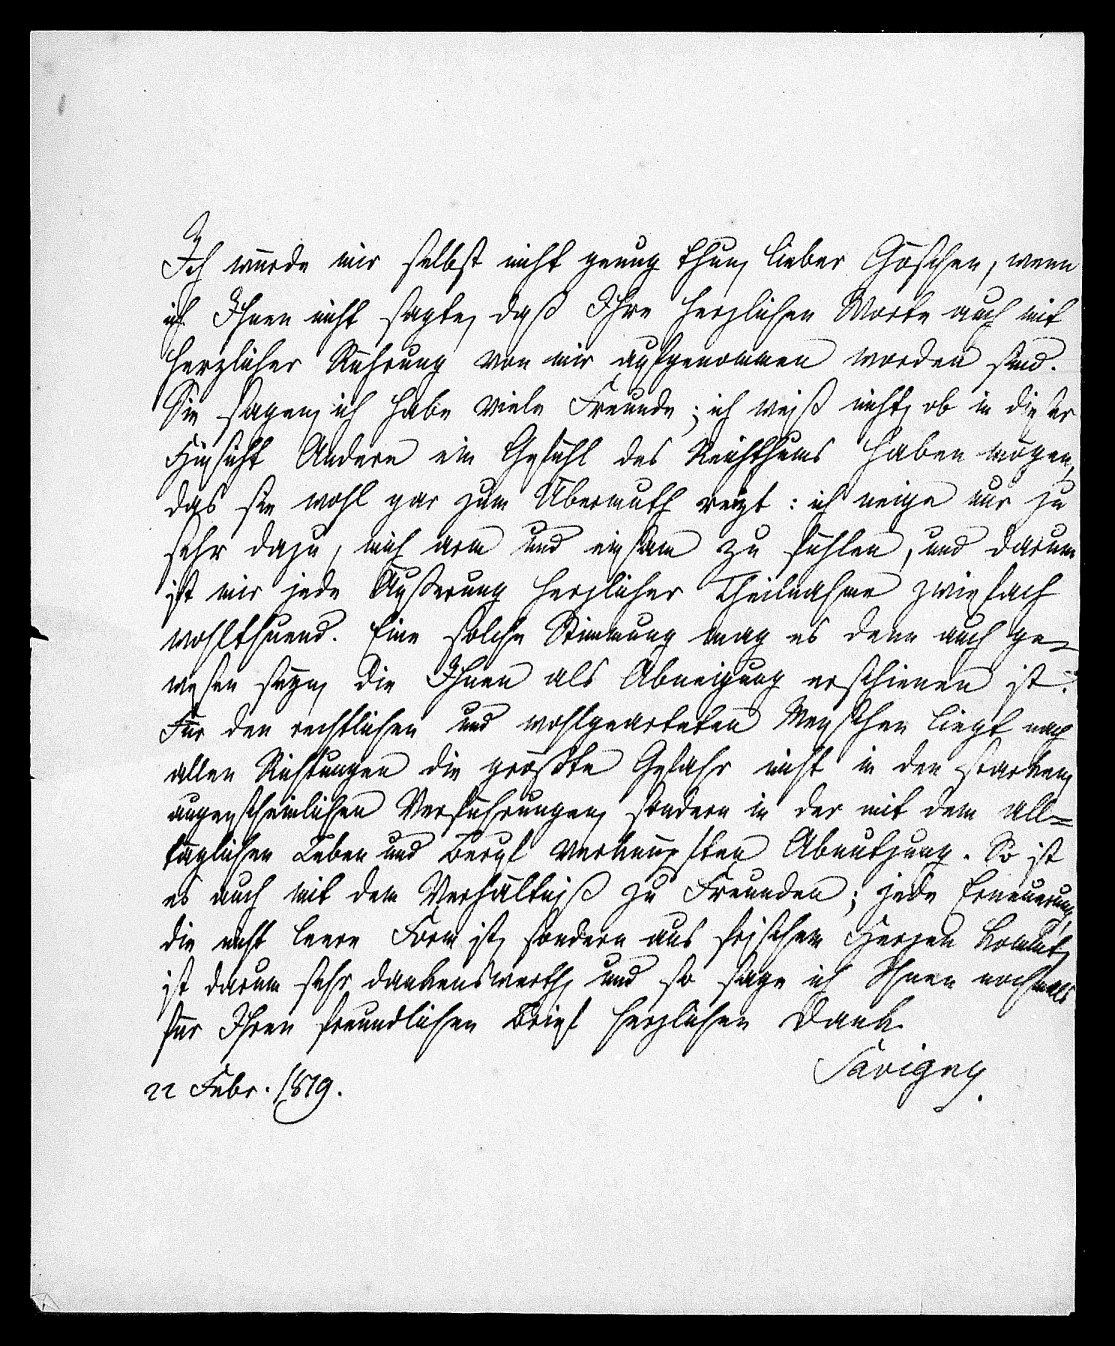 Ich würde mir selbst nicht genug thun, lieber Göschen, wenn
ich Ihnen nicht sagte, daß Ihre herzlichen Worte auch mit
herzlicher Rührung von mir aufgenommen worden sind.
Sie sagen, ich habe viele Freunde; ich weiß nicht, ob in dieser
Hinsicht Andere ein Gefühl des Reichthums haben mögen,
das sie wohl gar zum Übermuth reizt: ich neige nur zu
sehr dazu, mich arm und einsam zu fühlen, und darum
ist mir jede Äußerung herzlicher Theilnahme zwiefach
wohlthuend. Eine solche Stimmung mag es denn auch ge-
wesen seyn, die Ihnen als Abneigung erschienen ist.
Für den rechtlichen und wohlgearteten Menschen liegt nach
allen Richtungen die größte Gefahr nicht in den starken,
augenscheinlichen Verführungen, sondern in der mit dem all=
täglichen Leben und Beruf verknüpften Abnutzung. So ist
es auch mit dem Verhältniß zu Freunden; jede Erneuerung,
die nicht leere Form ist, sondern aus frischem Herzen kommt,
ist darum sehr dankenswerth, und so sage ich Ihnen nochmals
für Ihren freundlichen Brief herzlichen Dank.
Savigny.
22 Febr. 1819.